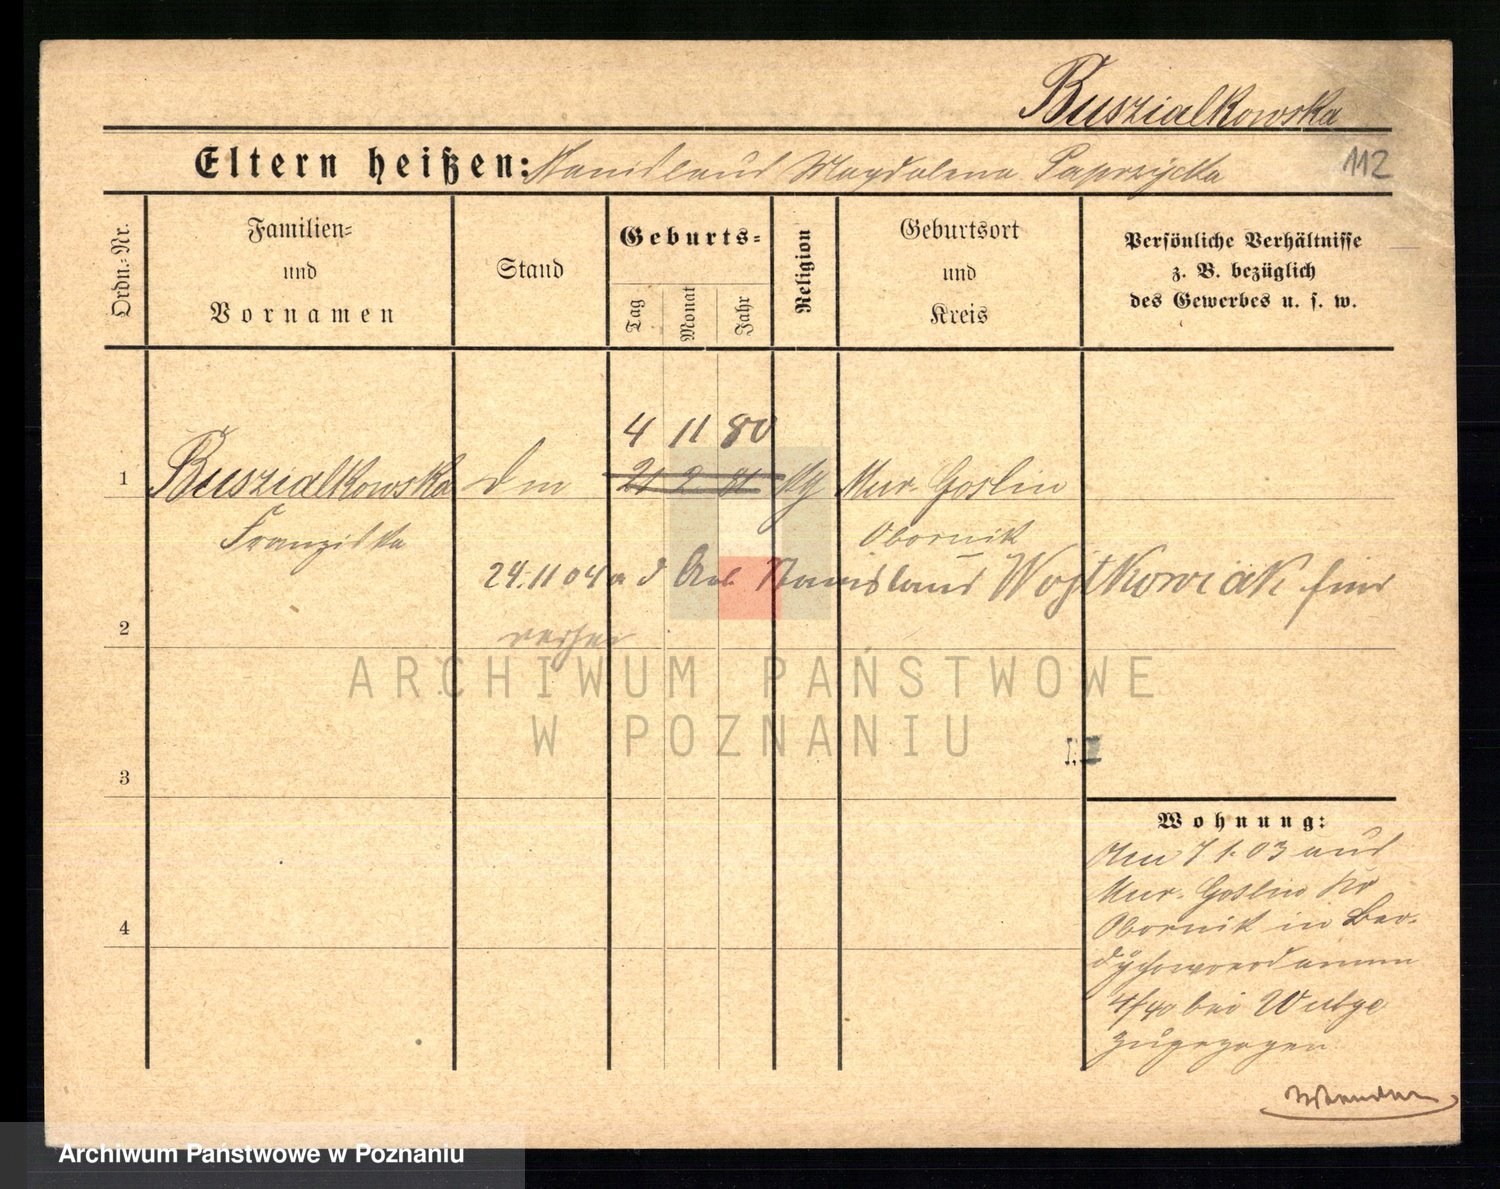 Buszialkowska
Eltern heißen: Stanislaus Magdalena Paprzycka
112
Ordn.-Nr.
Familien-
und
Vornamen
Stand
Geburts-
Tag
Monat
Jahr
Religion
Geburtsort
und
Kreis
Persönliche Verhältnisse
z. B. bezüglich
des Gewerbes u. s. w.
4 11 80
1 Buszialkowska 21 2 81 Mur. Goslin
Franziska Obornik
24.11 04 a d Arb. Stanislaus Wojtkowiak
2
ARCHIWUM PAŃSTWOWE
W POZNANIU
3
Wohnung:
1.03 aus
Mur. Goslin Kr
4 Obornik in Ber-
dychowerdamm
bei
zugezogen
Archiwum Państwowe w Poznaniu